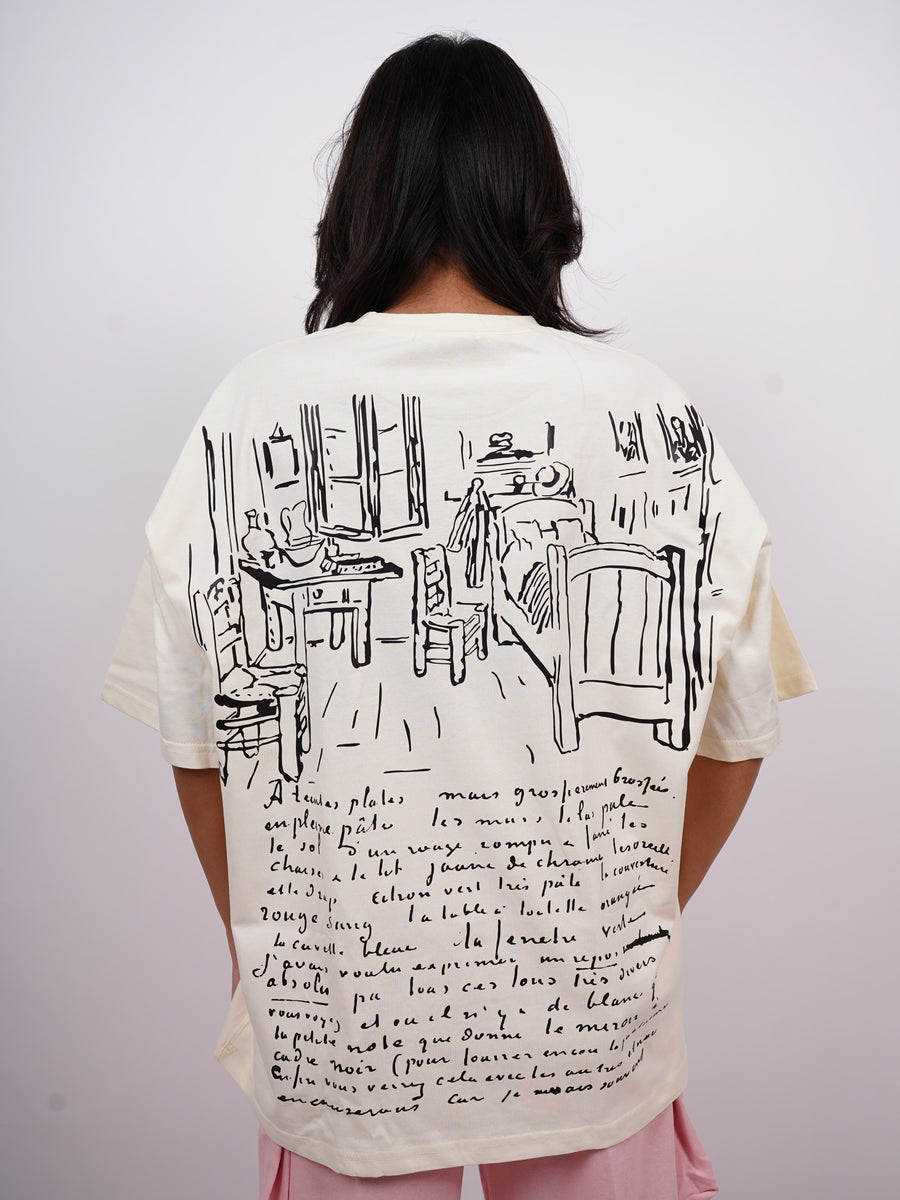 A teintes plates mais grossierement brossées
en pleine pâte les murs lilas pale
le sol d'un rouge rompu & fané les
chaises & le lit jaune de chrome les oreillers
et le drap citron vert très pâle la couverture
rouge sang la table à toilette orangée
la cuvette bleue la fenetre verte
J'avais voulu exprimer un repos
absolu par tous ces tons très divers
vous voyez et ou il n'y a de blanc que
la petite note que donne le miroir à
cadre noir (pour fourrer encore la
Enfin vous verrez cela avec les autres et nous
en causerons car je ne sais souvent